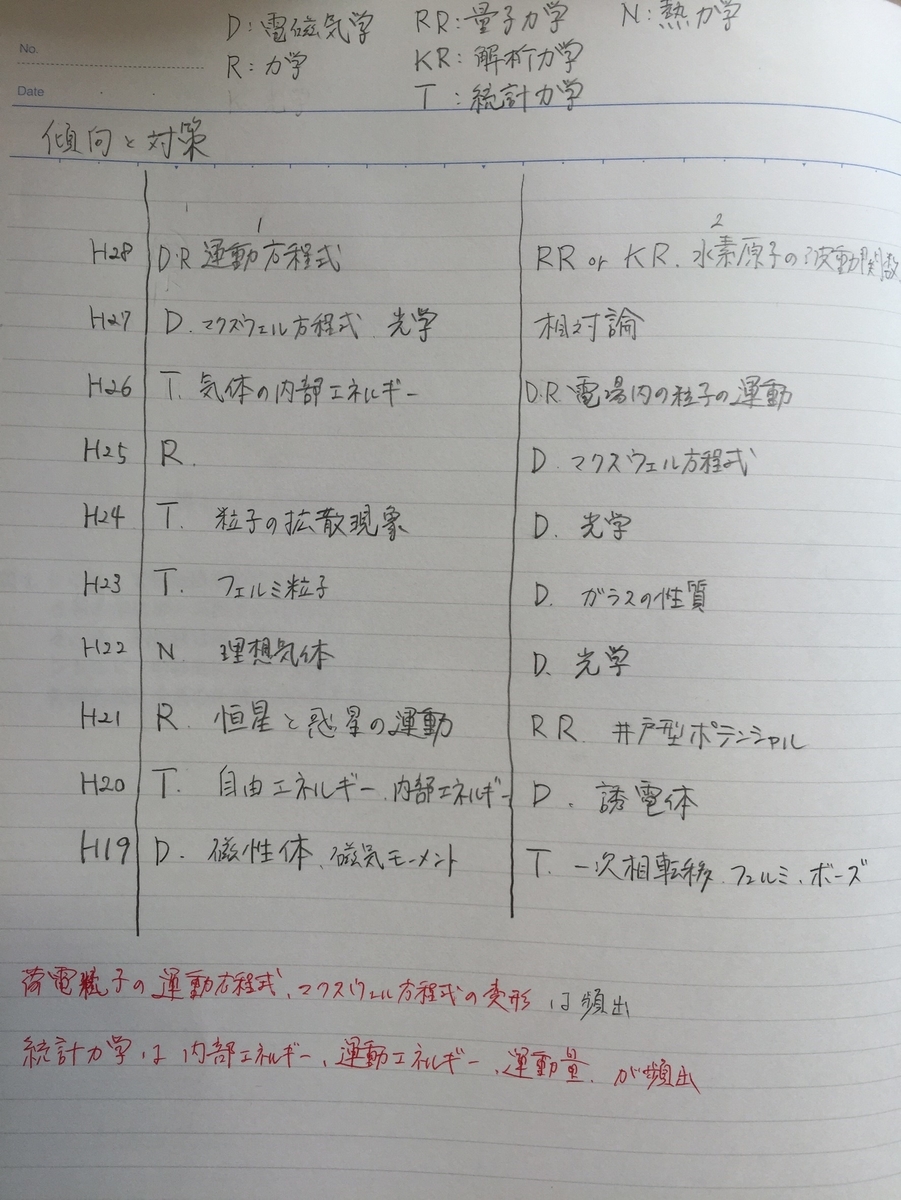 D:電磁気学 RR:量子力学 N:熱力学
No.
R:力学 KR:解析力学
Date
T:統計力学
傾向と対策
1 2
H28 D.R 運動方程式 RR or KR. 水素原子の波動関数
H27 D. マクスウェル方程式 光学 相対論
H26 T. 気体の内部エネルギー D.R. 電場内の粒子の運動
H25 R. D. マクスウェル方程式
H24 T. 粒子の拡散現象 D. 光学
H23 T. フェルミ粒子 D. ガラスの性質
H22 N 理想気体 D. 光学
H21 R. 恒星と惑星の運動 RR. 井戸型ポテンシャル
H20 T. 自由エネルギー、内部エネルギー D. 誘電体
H19 D. 磁性体、磁気モーメント T. 一次相転移、フェルミ、ボーズ
荷電粒子の運動方程式、マクスウェル方程式の変形 は頻出
統計力学は内部エネルギー、運動エネルギー、運動量、が頻出